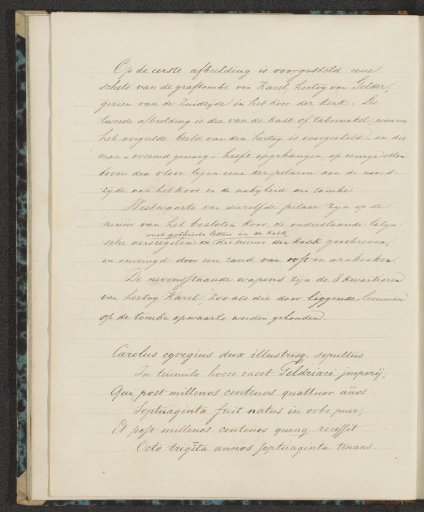 Op de eerste afbeelding is voorgesteld eene
schets van de graftombe van Karel, hertog van Gelder,
gezien van de zuidzijde in het koor der kerk. De
tweede afbeelding is die van de kast of tabernakel, waarin
het vergulde beeld van den hertog is voorgesteld en die
men - vreemd genoeg - heeft opgehangen, op eenige ellen
boven den vloer tegen eene der pilaren aan de noord
zijde van het koor in de nabijheid der tombe.
Westwaarts van diezelfde pilaar zijn op de
muur van het besloten koor, de onderstaande latijn
met gothische letters op de kalk
sche versregelen geschreven,
en omringd door een rand van ooft en arabesken.
De nevenstaande wapens zijn de 8 kwartieren
van hertog Karel, zoo als die door liggende leeuwen
op de tombe opwaarts worden gehouden.
Carolus egregius dux illustrisq. sepultus
In tumulo hocce iacet Geldriaci imperij;
Qui post millenos centenos quattuor anos
Septuaginta fuit natus in orbe puer;
Et post millenos centenos quinq. recessit
Octo trigita annos septuaginta tenens.